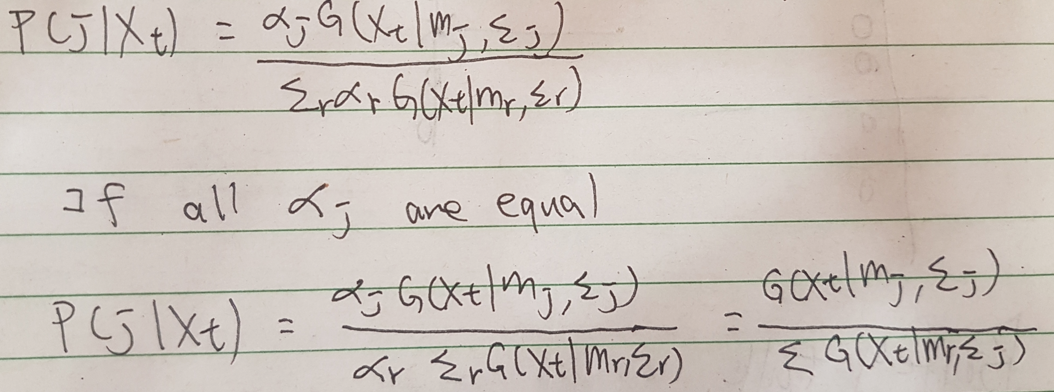 P(j|Xt) = αjG(Xt|mj,Σj) / ΣrαrG(Xt|mr,Σr)
If all αj are equal
P(j|Xt) = αjG(Xt|mj,Σj) / αr ΣrG(Xt|mr,Σr) = G(Xt|mj,Σj) / Σ G(Xt|mr,Σj)